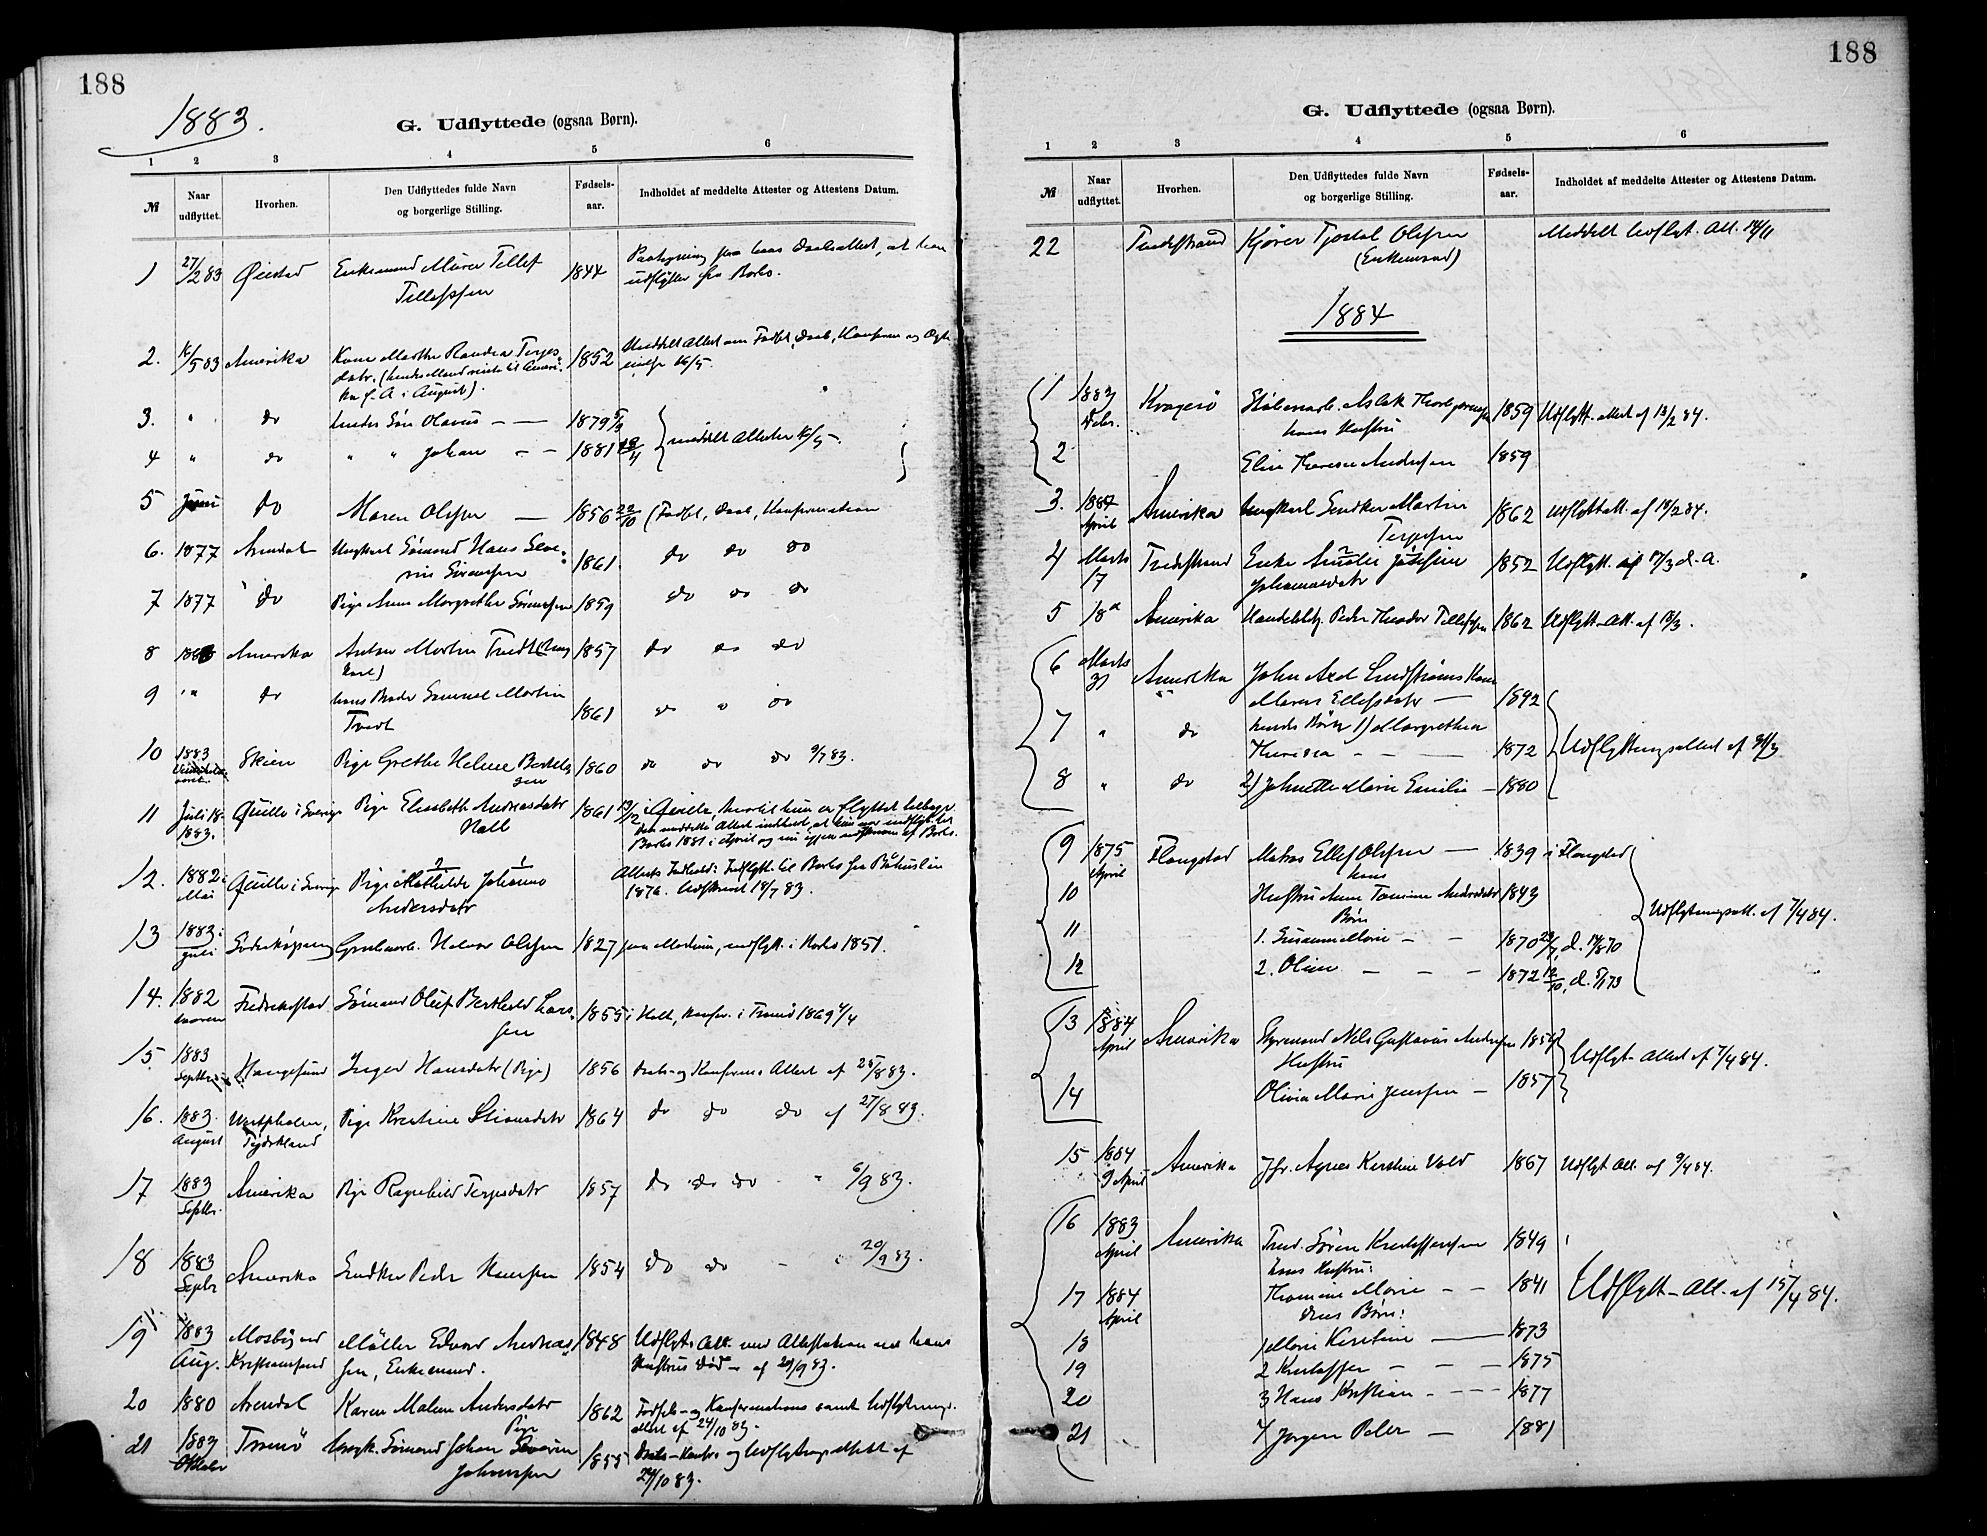 188
1883.
G. Udflyttede (ogsaa Børn).
1 2 3 4 5 6
№ Naar udflyttet. Hvorhen. Den Udflyttedes fulde Navn og borgerlige Stilling. Fødselsaar. Indholdet af meddelte Attester og Attestens Datum.
1 27/2 83 Øiestad Enkemand Murer Tellef 1844
Tellefsen udflytter fra Borbo.
2. 16/5 83 Amerika Kone Marthe Randia Terjes- 1852 Meddelt Attest om Fødsel, Daab,
datr. 16/5.
ka f. A. i August).
3. " do hendes Søn Olavus — — 1879
4 " do " " Johan — — 1881 meddelt Attester 16/5
5 Juni do Maren Olsen — 1856 22/10 (Fødsl, Daab, Konfirmation
6. 1877 Arendal Ungkarl Sømand Hans Seve- 1861 do do do
rin Sørensen
7 1877 do Pige Anne Margrethe Sørensen 1859 do do do
8 Amerika Anton Martin Tvedt (Ung 1857 do do do
karl)
9 " do hans Broder Samuel Martin 1861 do " do
Tvedt
10 1883 Skien Pige Grethe Helene Bertels 1860 do do do 9/7 83.
sen
11 Juli 18 1883. Qville i Sverige Pige Elisabeth Andreasdatr 1861 13/12 i Qville, hvortil hun er flyttet tilbage.
Hall
12. 1882 Mai Qville i Sverige Pige Mathilde Johanna Attests Indhold: Indflytt. til Borbo fra Båhuslän
Andersdatr 1876. Udskrevet 18/7 83.
13 1883: Juli Grubearb. Halvor Olsen 1827 fra Modum, indflytt. i Borbo 1851.
14. 1882 Fredrikstad Sømand Oluf Berthold Lars- 1855 i Holt, konfir. i Tromø 1869
sen
15. 1883 Septbr. Haugesund Inger Hansdatr (Pige) 1856 Daabs- og Konfirms. Attest af 25/8 83.
16. 1883 August Westphalen, Tydskland Pige Kristine Stiansdatr 1864 do do do af 27/8 83.
17 1883 Septbr. Amerika Pige Ragnhild Terjesdatr 1857 do do do " 6/9 83.
18 1883 Septbr Amerika Snedker Peder Hansen 1854 do do — 20/9 83.
19 1883 Aug. Mosby ved Kristiansand Møller Edvard Andreas- 1848 Udflyt. Att. med Attestation om hans
sen, Enkemand. Hustrus Død — af 29/9 83.
20 1880 Arendal Karen Malene Andersdatr 1862 Fødsels- og Konfirmations samt Udflytnings-
Pige attest af 24/10 83.
21 1883 Oktober Tromø Ungk. Sømand Johan Severin 1855 Daabs- Konfir. og Udflytningsattest af
Johansen 24/10 83.
188
G. Udflyttede (ogsaa Børn).
1 2 3 4 5 6
№ Naar udflyttet. Hvorhen. Den Udflyttedes fulde Navn og borgerlige Stilling. Fødselsaar. Indholdet af meddelte Attester og Attestens Datum.
22 Tvedestrand Olsen Meddelt Udflyt. Att. 14/11
(Enkemand)
1884
1 1883 Debr. Kragerø Aslak 1859 Udflytt. Attest af 13/2 84.
hans Hustru
2 Elise Therese Andersen 1859
3. April Amerika Ungkarl Snedker Martin 1862 Udflyttatt. af 18/2 84.
Terjesen
4 Marts 17 Tvedestrand Enke Amalie Josefine 1852 Udflytt. af 17/3 d. A.
Johannesdatr
5 18de Amerika Handelsbtj. Peder Theodor Tellefsen 1862 Udflytt-Att. af 18/3.
6 Marts 31 Amerika John Axel Lindstrøms Kone
Maren Ellefsdatr — 1842
7 " do hendes Børn 1) Margrethea
Theresia — — 1872 Udflytningsattest af 31/3
8 " do 2) Johnette Marie Emilie — 1880
9 1875 April Flangstad Matros Ellef Olsen — 1839 i Flangstad
hans
10 Hustru Anne Tomine Andersdatr 1843 Udflytningsatt. af 7/4 84.
Børn
11 1. Susanne Marie — — 1870 d. 14/8 70
12 2. Oline — — — 1872 12/10, d.
13 1884 April Amerika Styrmand Nils Gustavus Andersen 1854 Udflyt- Attest af 7/4 84.
Hustru
14 Olivia Marie Jensen — 1857
15 1884 9 April Amerika Jfr. Agnes Kirstine Vold 1867 Udflyt Att. af 9/4 84.
16 1883 April Amerika Tvml. Søren Kristoffersen 1849
hans Hustru:
17 1884 April Thomine Marie — — 1841 Udflytt- Att. af 15/4 84.
deres Børn:
18 1 Marie Kirstine — 1873
19 2 Kristoffer — — — 1875
20 3 Hans Kristian — — — 1877
21 4 Jørgen Peder — 1881